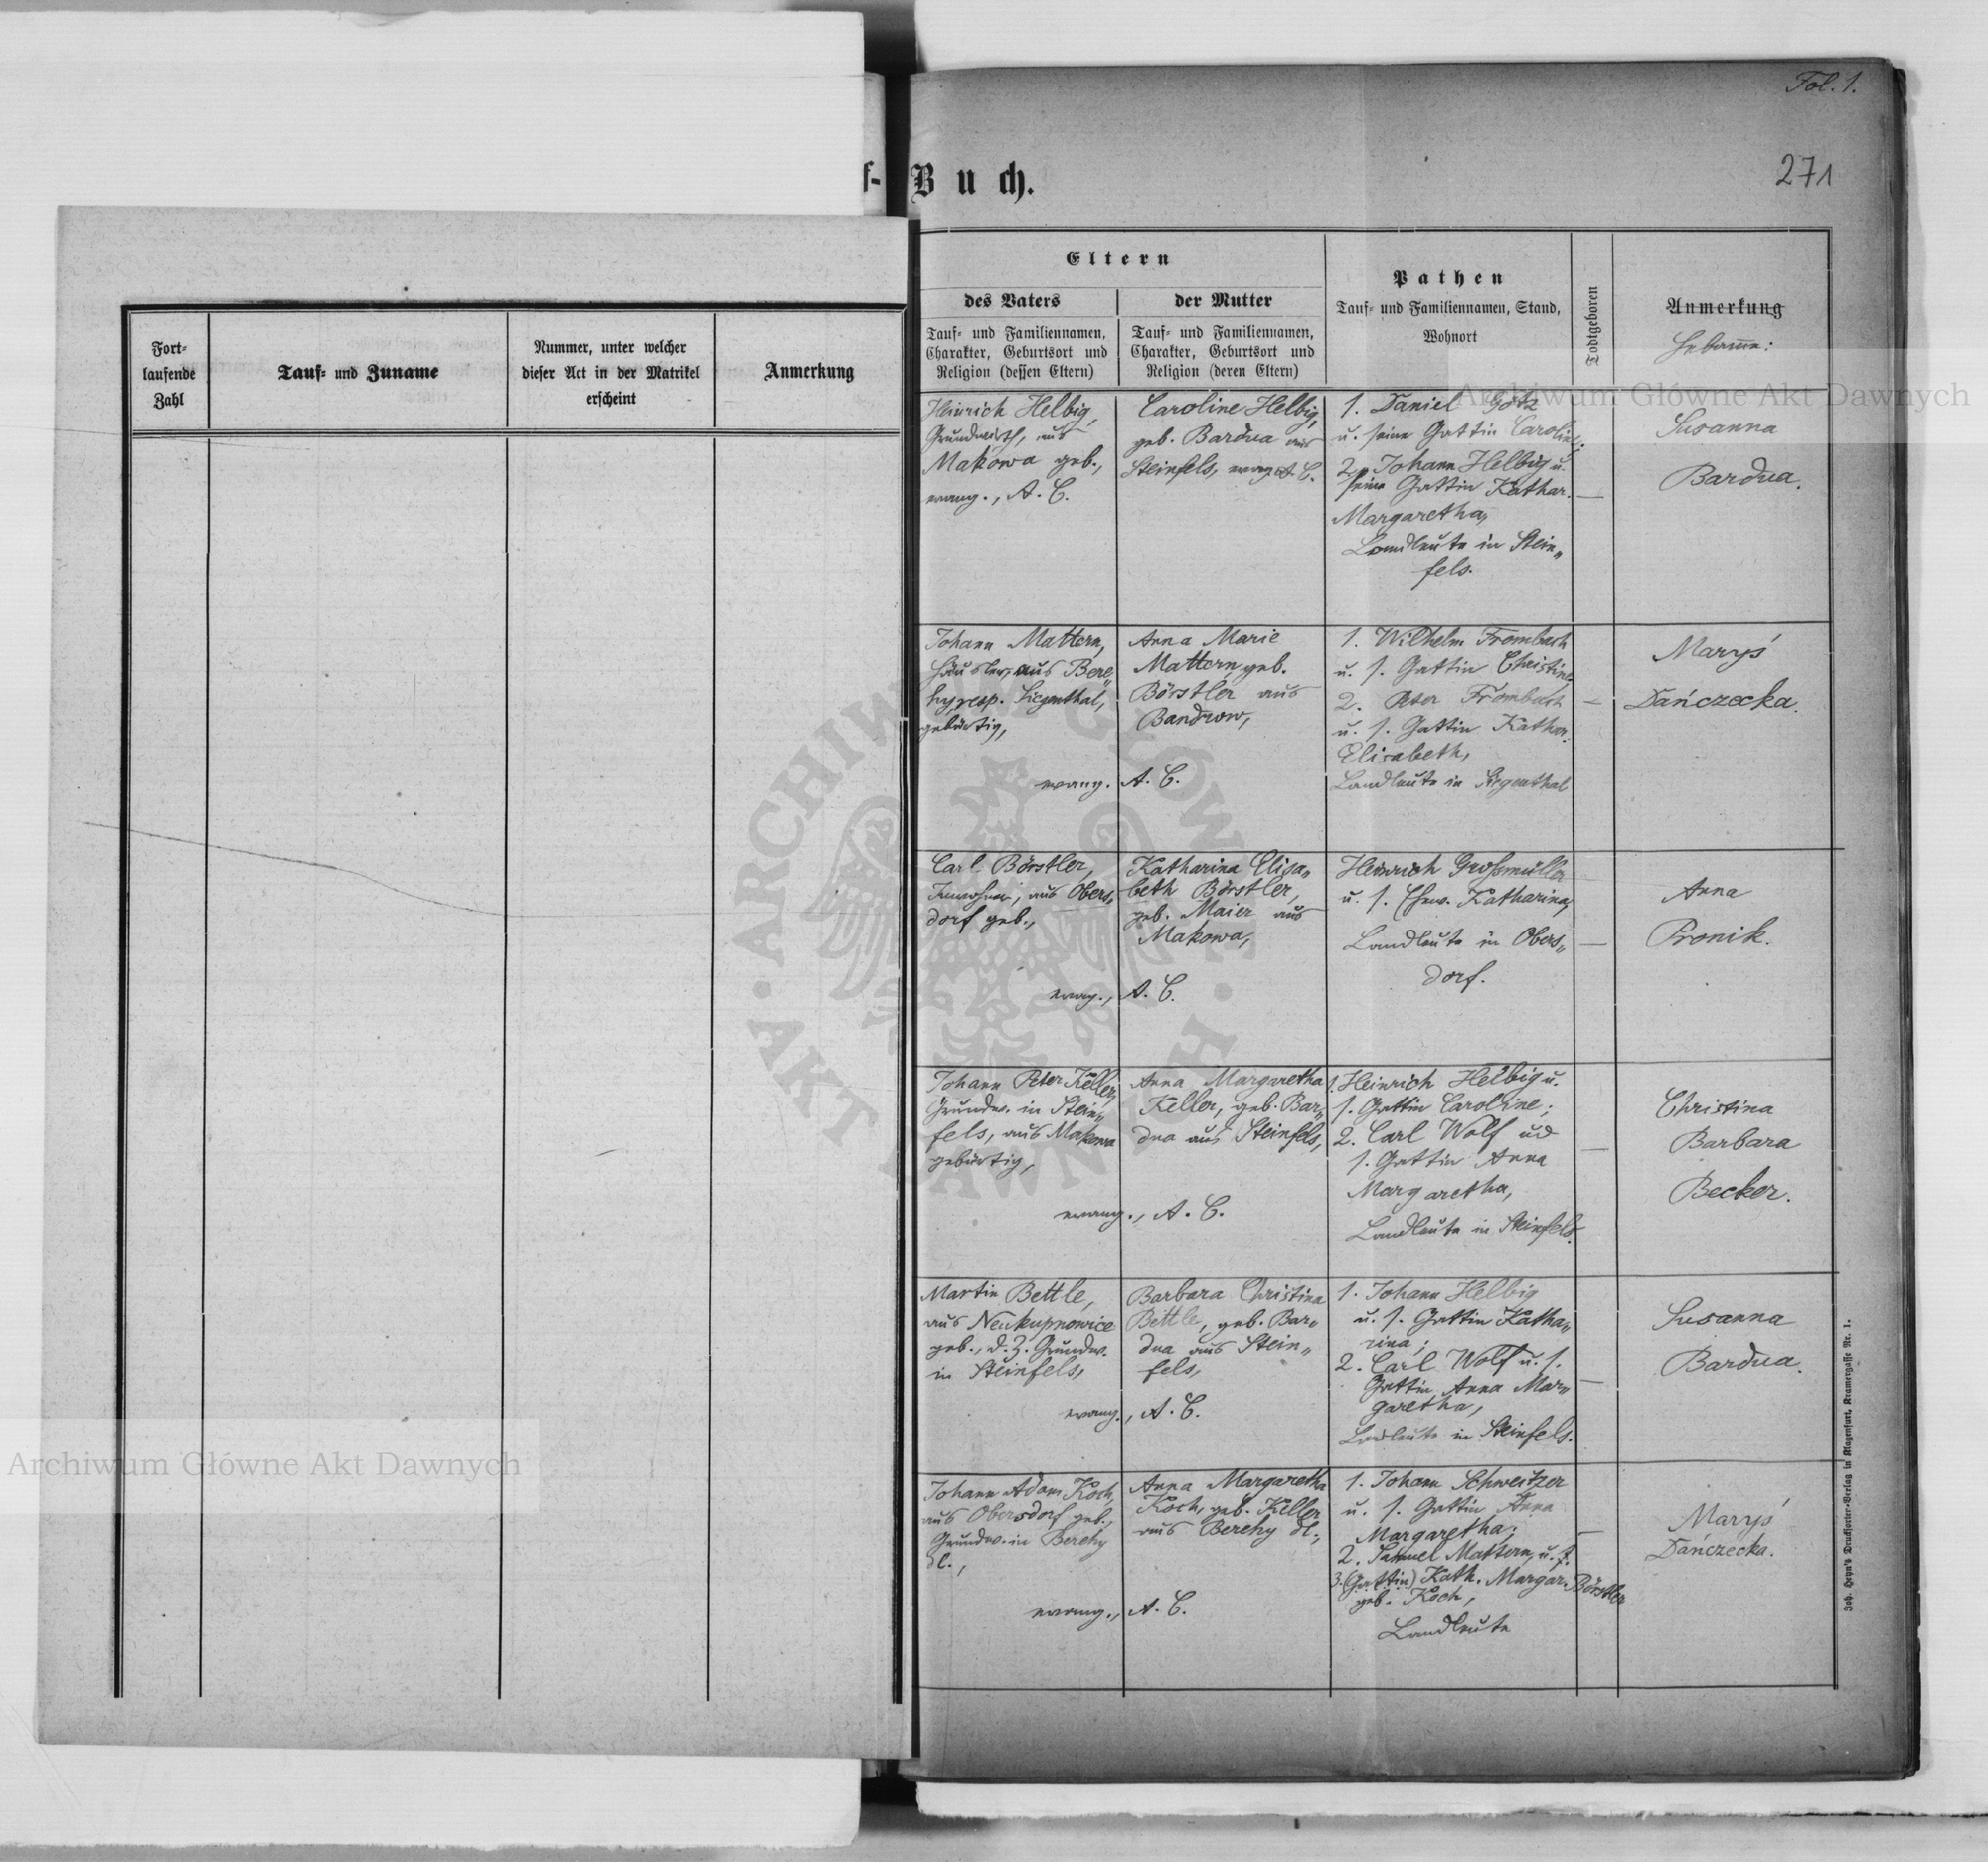 Fol. 1.
271
f- Buch.
Fort-
laufende
Zahl
Tauf- und Zuname
Nummer, unter welcher
dieser Act in der Matrikel
erscheint
Anmerkung
Eltern
des Vaters
Tauf- und Familiennamen,
Charakter, Geburtsort und
Religion (dessen Eltern)
der Mutter
Tauf- und Familiennamen,
Charakter, Geburtsort und
Religion (deren Eltern)
Pathen
Tauf- und Familiennamen, Stand,
Wohnort
Todtgeboren
Anmerkung
Hebamme:
Heinrich Helbig,
Grundwirth, aus
Makowa geb.,
evang., A. C.
Caroline Helbig,
geb. Bardua aus
Steinfels, evang. A. C.
1. Daniel Götz
u. seine Gattin Caroline;
2. Johann Helbig u.
seine Gattin Kathar.
Margaretha,
Landleute in Stein„
fels.
—
Susanna
Bardua.
Johann Mattern,
Häusler, aus Bere„
hy resp. Siegenthal,
gebürtig,
evang.
Anna Marie
Mattern, geb.
Börstler aus
Bandrow,
A. C.
1. Wilhelm Frombach
u. s. Gattin Christine,
2. Peter Frombach
u. s. Gattin Kathar.
Elisabeth,
Landleute in Siegenthal
—
Maryś
Dańczecka.
Carl Börstler,
Inwohner, aus Obers„
dorf geb.,
evang.,
Katharina Elisa„
beth Börstler,
geb. Maier aus
Makowa,
A. C.
Heinrich Großmüller
u. s. Ehew. Katharina,
Landleute in Obers„
dorf.
—
Anna
Pronik.
Johann Peter Keller,
Grundw. in Stein„
fels, aus Makowa
gebürtig,
evang., A. C.
Anna Margaretha
Keller, geb. Bar„
dua aus Steinfels,
1. Heinrich Helbig u.
s. Gattin Caroline;
2. Carl Wolf und
s. Gattin Anna
Margaretha,
Landleute in Steinfels.
—
Christina
Barbara
Becker.
Martin Bettle,
aus Neukupnowice
geb., d. Z. Grundw.
in Steinfels,
evang., A. C.
Barbara Christina
Bettle, geb. Bar„
dua aus Stein„
fels,
1. Johann Helbig
u. s. Gattin Katha„
rina;
2. Carl Wolf u. s.
Gattin Anna Mar„
garetha,
Landleute in Steinfels.
—
Susanna
Bardua.
Johann Adam Koch,
aus Obersdorf geb.,
Grundw. in Berehy
dl.,
evang.,
Anna Margaretha
Koch, geb. Keller
aus Berehy dl.,
A. C.
1. Johann Schweitzer
u. s. Gattin Anna
Margaretha;
2. Samuel Mattern, u. s.
3. (Gattin) Kath. Margar. Börstler
geb. Koch,
Landleute
—
Maryś
Dańczecka.
Joh. Heyn's Drucksorten-Verlag in Klagenfurt, Kramergasse Nr. 1.
Archiwum Główne Akt Dawnych
Archiwum Główne Akt Dawnych
ARCHIWUM GŁÓWNE AKT DAWNYCH